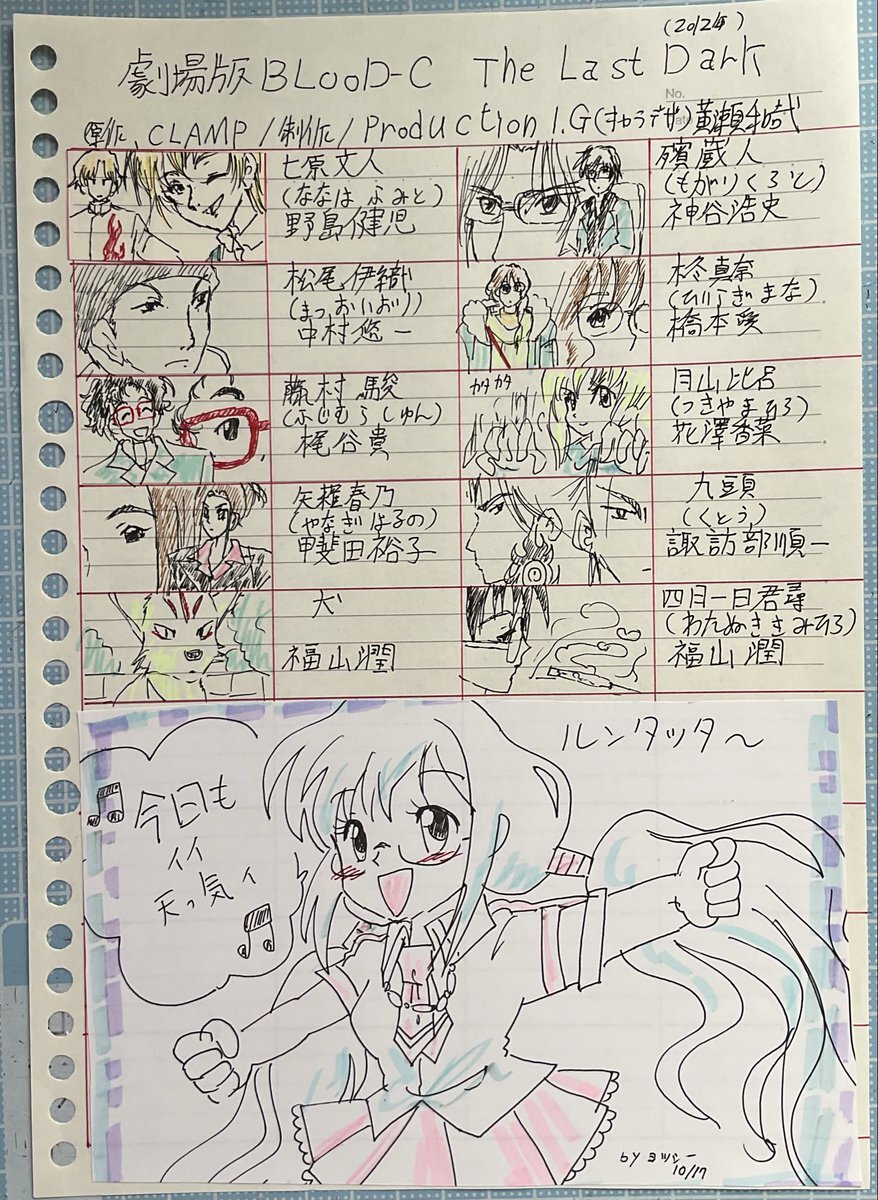 (2012年)
劇場版 BLooD-C The Last Dark
No.
原作、CLAMP/制作/Production I.G(キャラデザ)黄瀬和哉
七原文人
(ななはらふみと)
野島健児
殯蔵人
(もがりくろと)
神谷浩史
松尾伊織
(まつおいおり)
中村悠一
柊真奈
(ひいらぎまな)
橋本愛
藤村駿
(ふじむらしゅん)
梶裕貴
カタカタ
月山比呂
(つきやまひろ)
花澤香菜
矢薙春乃
(やなぎはるの)
甲斐田裕子
九頭
(くとう)
諏訪部順一
犬
福山潤
四月一日君尋
(わたぬききみひろ)
福山潤
ルンタッタ〜
今日も
イイ
天っ気ィ
by ヨツシー
10/17